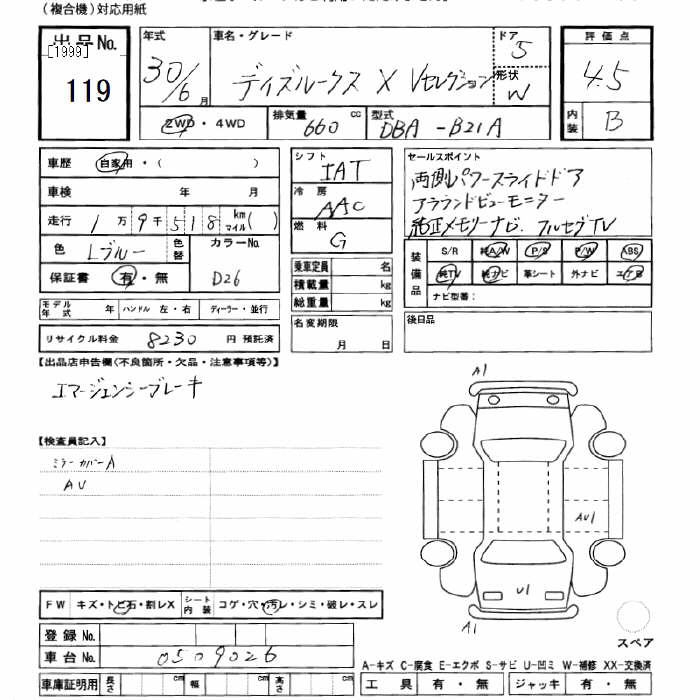 (複合機)対応用紙
出品No. [1999] 119
年式 30/6月
車名・グレード デイズルークス X Vセレクション
ドア 5
形状 W
評価点 4.5
内装 B
2WD・4WD
排気量 660 cc
型式 DBA-B21A
車歴 自家用・( )
車検 年 月
走行 1万9千518 km マイル( )
色 Lブルー 色替 カラーNo. D26
保証書 有・無
モデル年式 年 ハンドル 左・右 ディーラー・並行
リサイクル料金 8230 円 預託済
シフト IAT
冷房 AAC
燃料 G
乗車定員 名
積載量 kg
総重量 kg
名変期限 月 日
セールスポイント
両側パワースライドドア
アラウンドビューモニター
純正メモリーナビ、フルセグTV
装備品 S/R 純A/W P/S P/W ABS
純TV 純ナビ 革シート 外ナビ エアB
ナビ型番:
後日品
【出品店申告欄(不良箇所・欠品・注意事項等)】
エマージェンシーブレーキ
【検査員記入】
ミラーカバーA
AU
A1
AU1
U1
A1
スペア
FW キズ・トビ石・割レX シート内装 コゲ・穴・汚レ・シミ・破レ・スレ
登録No.
車台No. 0509026
車庫証明用 長さ cm 幅 cm 高さ cm
A-キズ C-腐食 E-エクボ S-サビ U-凹ミ W-補修 XX-交換済
工具 有・無 ジャッキ 有・無